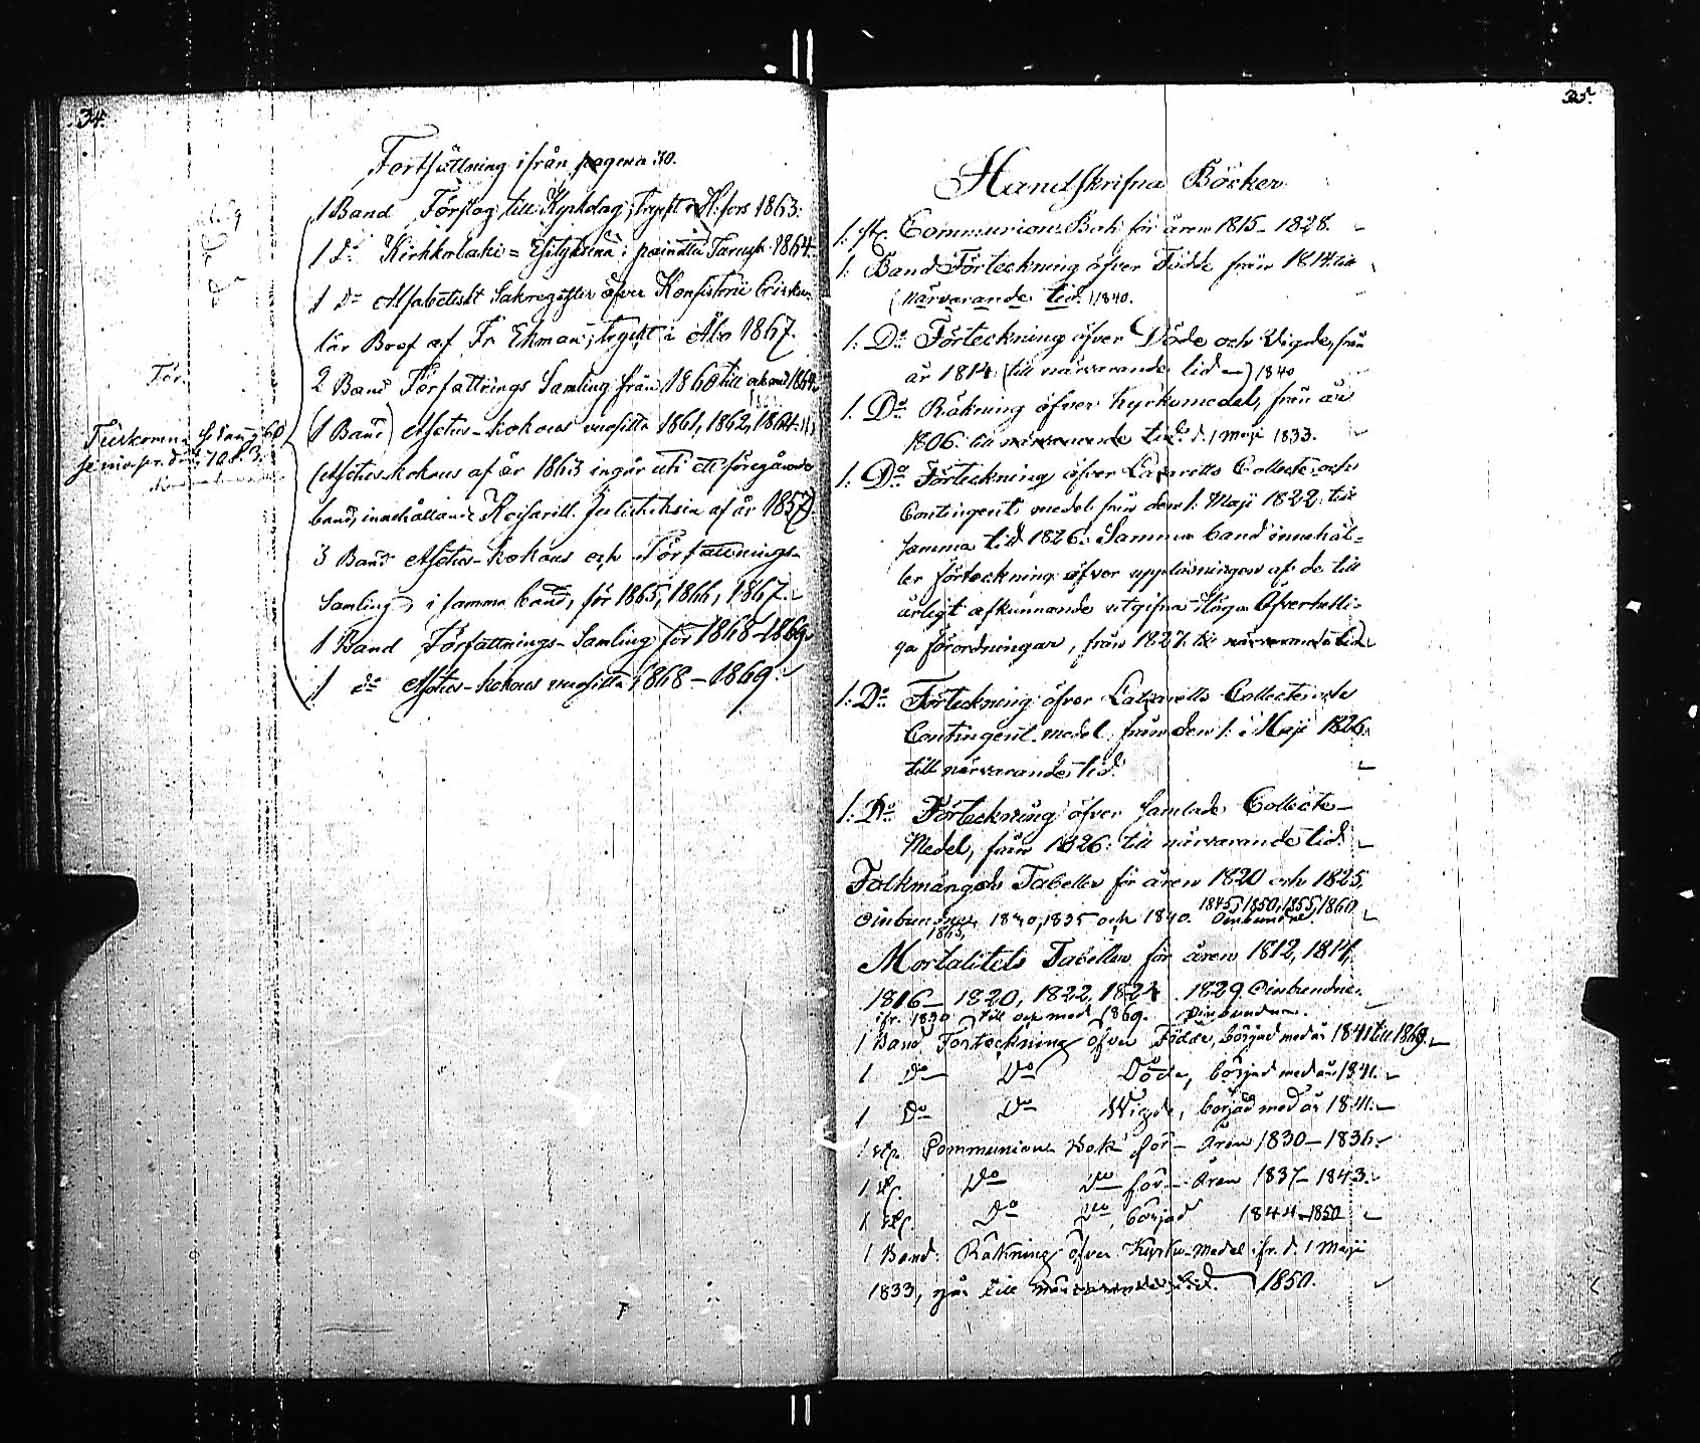 34.
Fortsättning ifrån pagena 30.
1 Band Förslag till Kyrkolag, tryckt i H:fors 1863.
1 do Kirkkolaki = Esityksenä; painettu Turussa 1864.
1 do Alfabetiskt Sakregister öfver Konsistorii Cirku-
lär Bref af Fr. Ekman, tryckt i Åbo 1867.
2 Band Författnings Samling från 1860 till och med 1864.
(1 Band) Asetus-kokous vuosilta 1861, 1862, 1864.
(Asetus-kokous af år 1863 ingår uti ett föregående
band, innehållande Kejsarill. af år 1857).
3 Band Asetus-kokous och Författnings-
Samling, i samma band, för 1865, 1866, 1867.
1 Band Författnings-Samling för 1868-1869.
1 do Asetus-kokous vuosilta 1868-1869.
För
35.
Handskrifna Böcker.
1. st. Communions Bok för åren 1815-1828.
1: Band Förteckning öfver Födde från 1814 till
(närvarande tid.) 1840.
1: Do Förteckning öfver Döde och Vigde, från
år 1814 (till närvarande tid) 1840
1. Do Räkning öfver Kyrkomedel, från år
1806. till närvarande tid. d. 1 Maji 1833.
1: Do Förteckning öfver Lazaretts Collecte och
Contingents medel från den 1. Maji 1822 till
samma tid 1826. Samma band innehål-
ler förteckning öfver uppläsningen af de till
årligt afkunnande utgifna Höga Öfverhetli-
ga förordningar, från 1827 till närvarande tid.
1: Do Förteckning öfver Lazaretts Collecte och
Contingent medel från den 1. Maji 1826
till närvarande tid.
1: Do Förteckning öfver samlade Collecte-
Medel, från 1826. till närvarande tid.
Folkmängds Tabeller för åren 1820 och 1825,
1845, 1850, 1855, 1860
oinbundne, 1830, 1835 och 1840. Oinbundne.
1865,
Mortalitets Tabeller för åren 1812, 1814,
1816- 1820, 1822, 1824. 1829. Oinbundne.
ifr. 1830 till och med 1869. Oinbundne.
1 Band Förteckning öfver Födde, börjad med år 1841 till 1869.
1 Do Do Döde, börjad med år 1841.
1 Do Do Wigde, börjad med år 1841.
1 st. Communions Bok för Åren 1830-1836.
1 st. Do Do för Åren 1837-1843.
1 st. Do Do börjad 1844-1850
1 Band: Räkning öfver Kyrko-Medel ifr. d. 1 Maji
1833, går till närvarande tid. 1850.